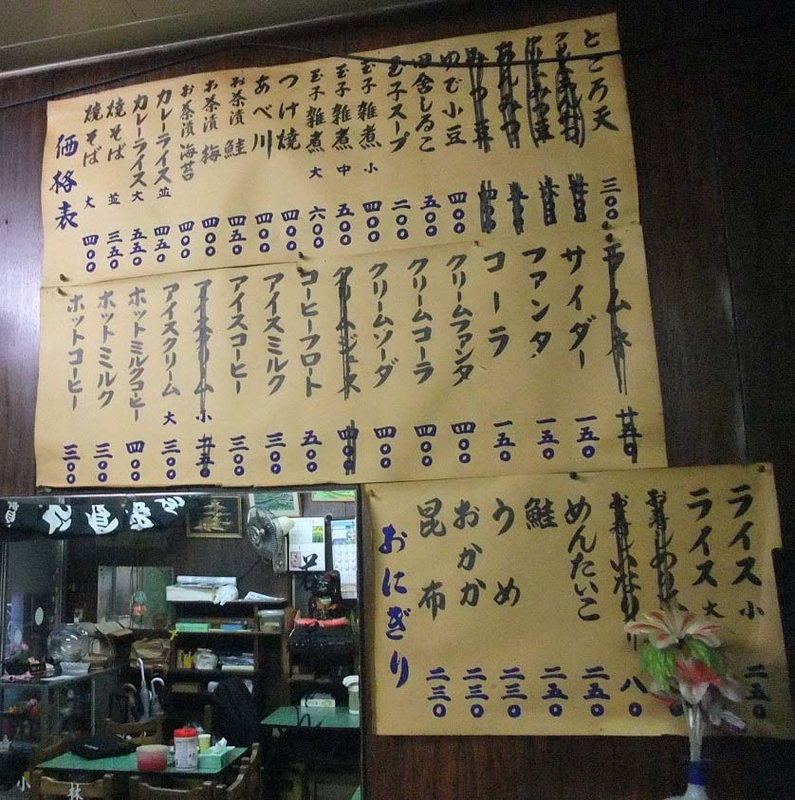 ところ天 三〇〇
あんみつ
みつ豆
ゆで小豆 四〇〇
田舎しるこ 五〇〇
玉子スープ 二〇〇
玉子雑煮 小 四〇〇
玉子雑煮 中 五〇〇
玉子雑煮 大 六〇〇
つけ焼 四〇〇
あべ川 四〇〇
お茶漬 鮭 四五〇
お茶漬 梅 四〇〇
お茶漬 海苔 四〇〇
カレーライス 並 四五〇
カレーライス 大 五五〇
焼そば 並 三五〇
焼そば 大 四〇〇
価格表
ラムネ
サイダー 一五〇
ファンタ 一五〇
コーラ 一五〇
クリームファンタ 四〇〇
クリームコーラ 四〇〇
クリームソーダ 四〇〇
クリームジュース
コーヒーフロート 五〇〇
アイスミルク 三〇〇
アイスコーヒー 三〇〇
アイスクリーム 小
アイスクリーム 大 三〇〇
ホットミルクコーヒー 四〇〇
ホットミルク 三〇〇
ホットコーヒー 三〇〇
ライス 小 二五〇
ライス 大
いなり 八〇
めんたいこ 二五〇
鮭 二五〇
うめ 二三〇
おかか 二三〇
昆布 二三〇
おにぎり
小林